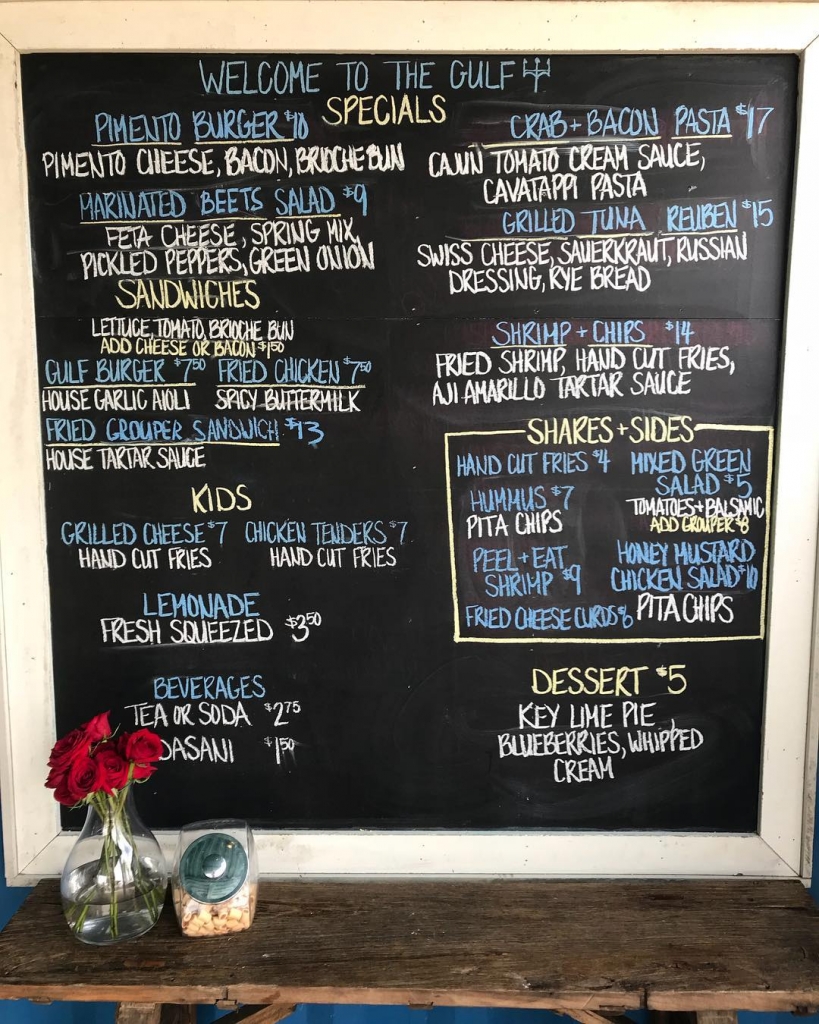 WELCOME TO THE GULF
SPECIALS
PIMENTO BURGER $10
PIMENTO CHEESE, BACON, BRIOCHE BUN
MARINATED BEETS SALAD $9
FETA CHEESE, SPRING MIX,
PICKLED PEPPERS, GREEN ONION
CRAB + BACON PASTA $17
CAJUN TOMATO CREAM SAUCE,
CAVATAPPI PASTA
GRILLED TUNA REUBEN $15
SWISS CHEESE, SAUERKRAUT, RUSSIAN
DRESSING, RYE BREAD
SHRIMP + CHIPS $14
FRIED SHRIMP, HAND CUT FRIES,
AJI AMARILLO TARTAR SAUCE
SANDWICHES
LETTUCE, TOMATO, BRIOCHE BUN
ADD CHEESE OR BACON $1.50
GULF BURGER $7.50 FRIED CHICKEN $7.50
HOUSE GARLIC AIOLI SPICY BUTTERMILK
FRIED GROUPER SANDWICH $13
HOUSE TARTAR SAUCE
KIDS
GRILLED CHEESE $7 CHICKEN TENDERS $7
HAND CUT FRIES HAND CUT FRIES
LEMONADE
FRESH SQUEEZED $3.50
BEVERAGES
TEA OR SODA $2.75
DASANI $1.50
SHARES + SIDES
HAND CUT FRIES $4
HUMMUS $7
PITA CHIPS
PEEL + EAT
SHRIMP $9
FRIED CHEESE CURDS $6
MIXED GREEN
SALAD $5
TOMATOES + BALSAMIC
ADD GROUPER $8
HONEY MUSTARD
CHICKEN SALAD $10
PITA CHIPS
DESSERT $5
KEY LIME PIE,
BLUEBERRIES, WHIPPED
CREAM